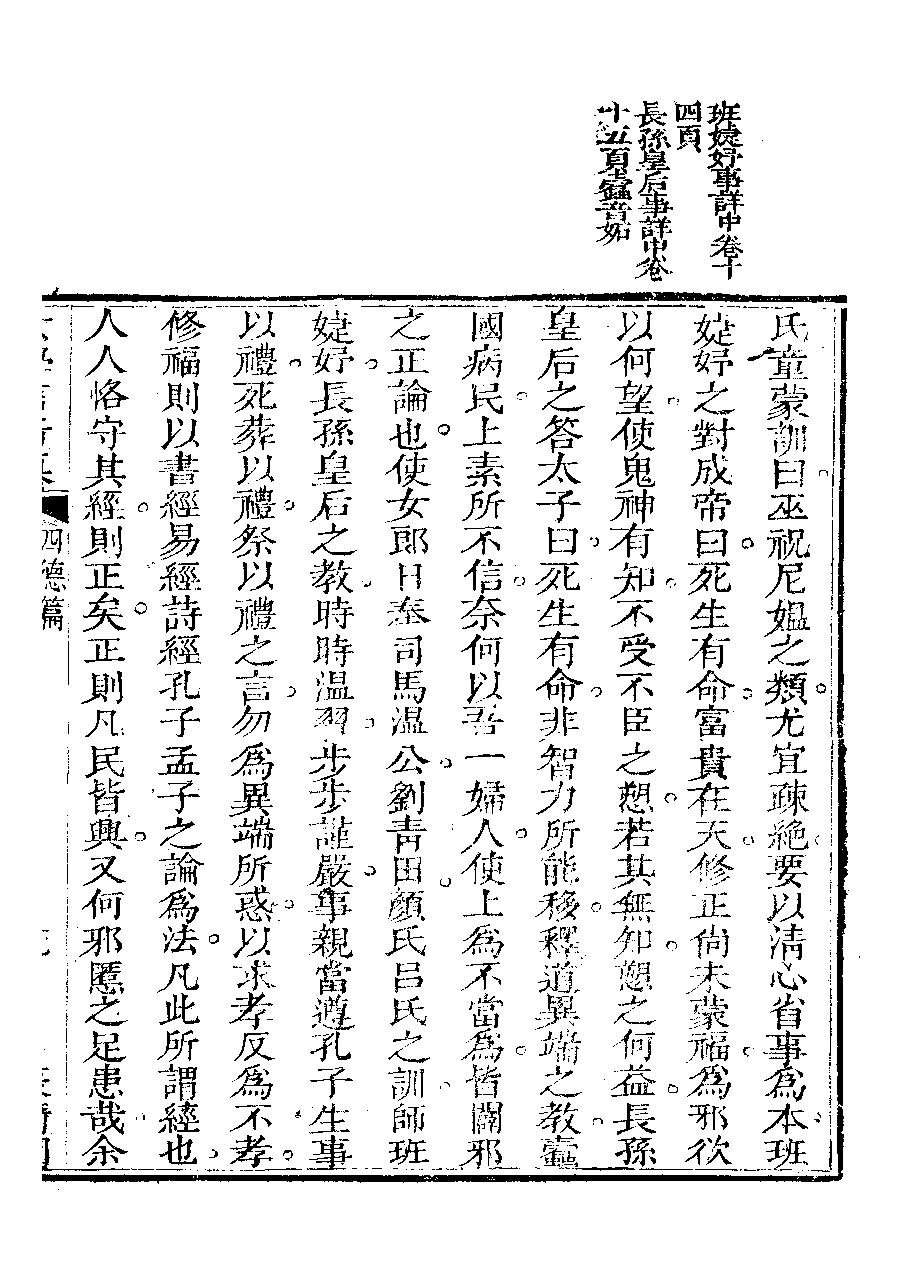 班婕妤事詳中卷十
四頁
長孫皇后事詳中卷
十五頁蠹音妬
氏童蒙訓曰巫祝尼媼之類尤宜疎絶要以清心省事爲本班
婕妤之對成帝曰死生有命富貴在天修正尙未蒙福爲邪欲
以何望使鬼神有知不受不臣之愬若其無知愬之何益長孫
皇后之答太子曰死生有命非智力所能移釋道異端之教蠹
國病民上素所不信奈何以吾一婦人使上爲不當爲皆闢邪
之正論也使女郎日奉司馬温公劉青田顏氏呂氏之訓師班
婕妤長孫皇后之教時時温習步步謹嚴事親當遵孔子生事
以禮死葬以禮祭以禮之言勿爲異端所惑以求孝反爲不孝
修福則以書經易經詩經孔子孟子之論爲法凡此所謂經也
人人恪守其經則正矣正則凡民皆興又何邪慝之足患哉余
四德篇